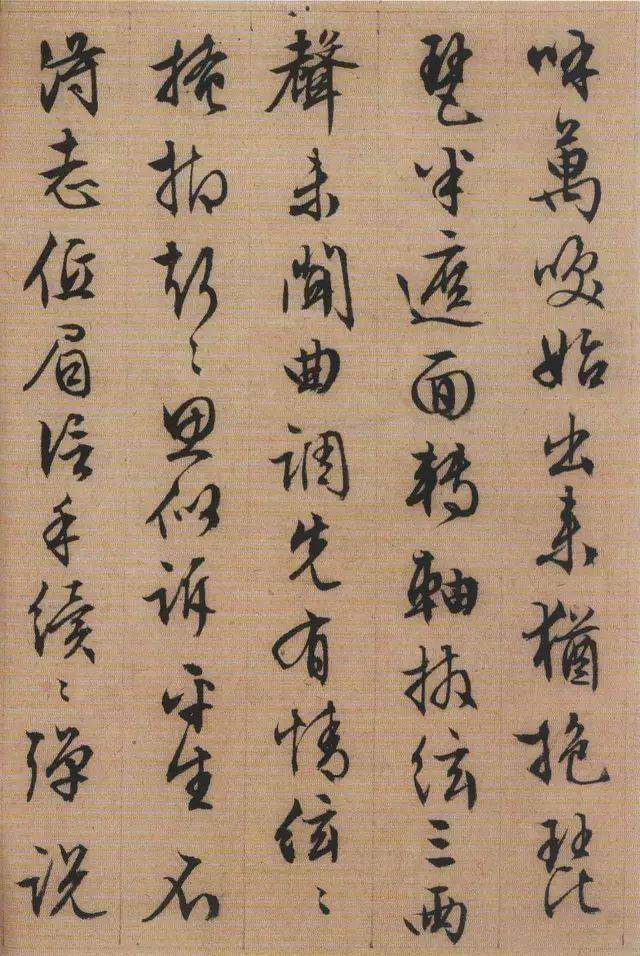 呼萬喚始出来猶抱琵
琶半遮面轉軸撥絃三兩
聲未聞曲調先有情絃〻
掩抑声〻思似訴平生不
得志低眉信手續〻彈説